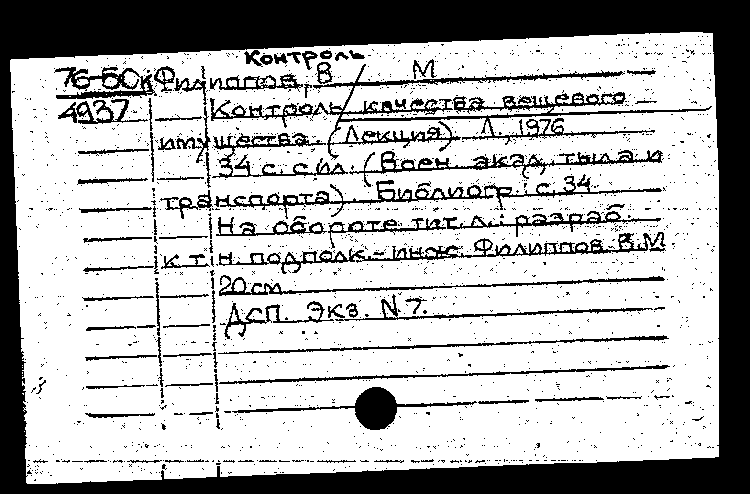 Контроль
76-50к Филиппов, В М
4937 Контроль / качества вещевого
имущества. (Лекция). Л., 1976
34 с. с ил. (Воен. акад. тыла и
транспорта). Библиогр.: с. 34
На обороте тит. л.: разраб.
к.т.н. подполк.-инж. Филиппов В.М
20 см.
ДСП. Экз. N 7.